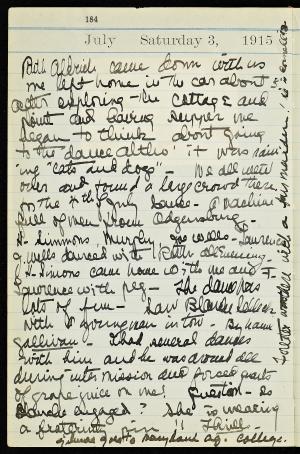 184
July Saturday 3, 1915
Ruth Aldrich came down with us
we left home in the car about 5
after exploring the cottage and
point and having supper we
began to think about going
to the dance altho' it was rain-
ing "cats and dogs" - We all went
over and found a large crowd there
for the 4th July dance - A machine
full of men from
Simmons, Murphy, Joe Wells - Lawrence
Wells danced with Ruth all Evening.
Simons came home with me and
Lawrence with Peg - The dance was
lots of fun - Saw Blanche
with a young man in tow, By name
Sullivan. I had several dances
with him and he was around all
during intermission and forced parts
of grape juice on me! Question - Is
Blanche engaged? She is wearing
a fraternity pin!! Thrill -
goes to Maryland Ag. College.